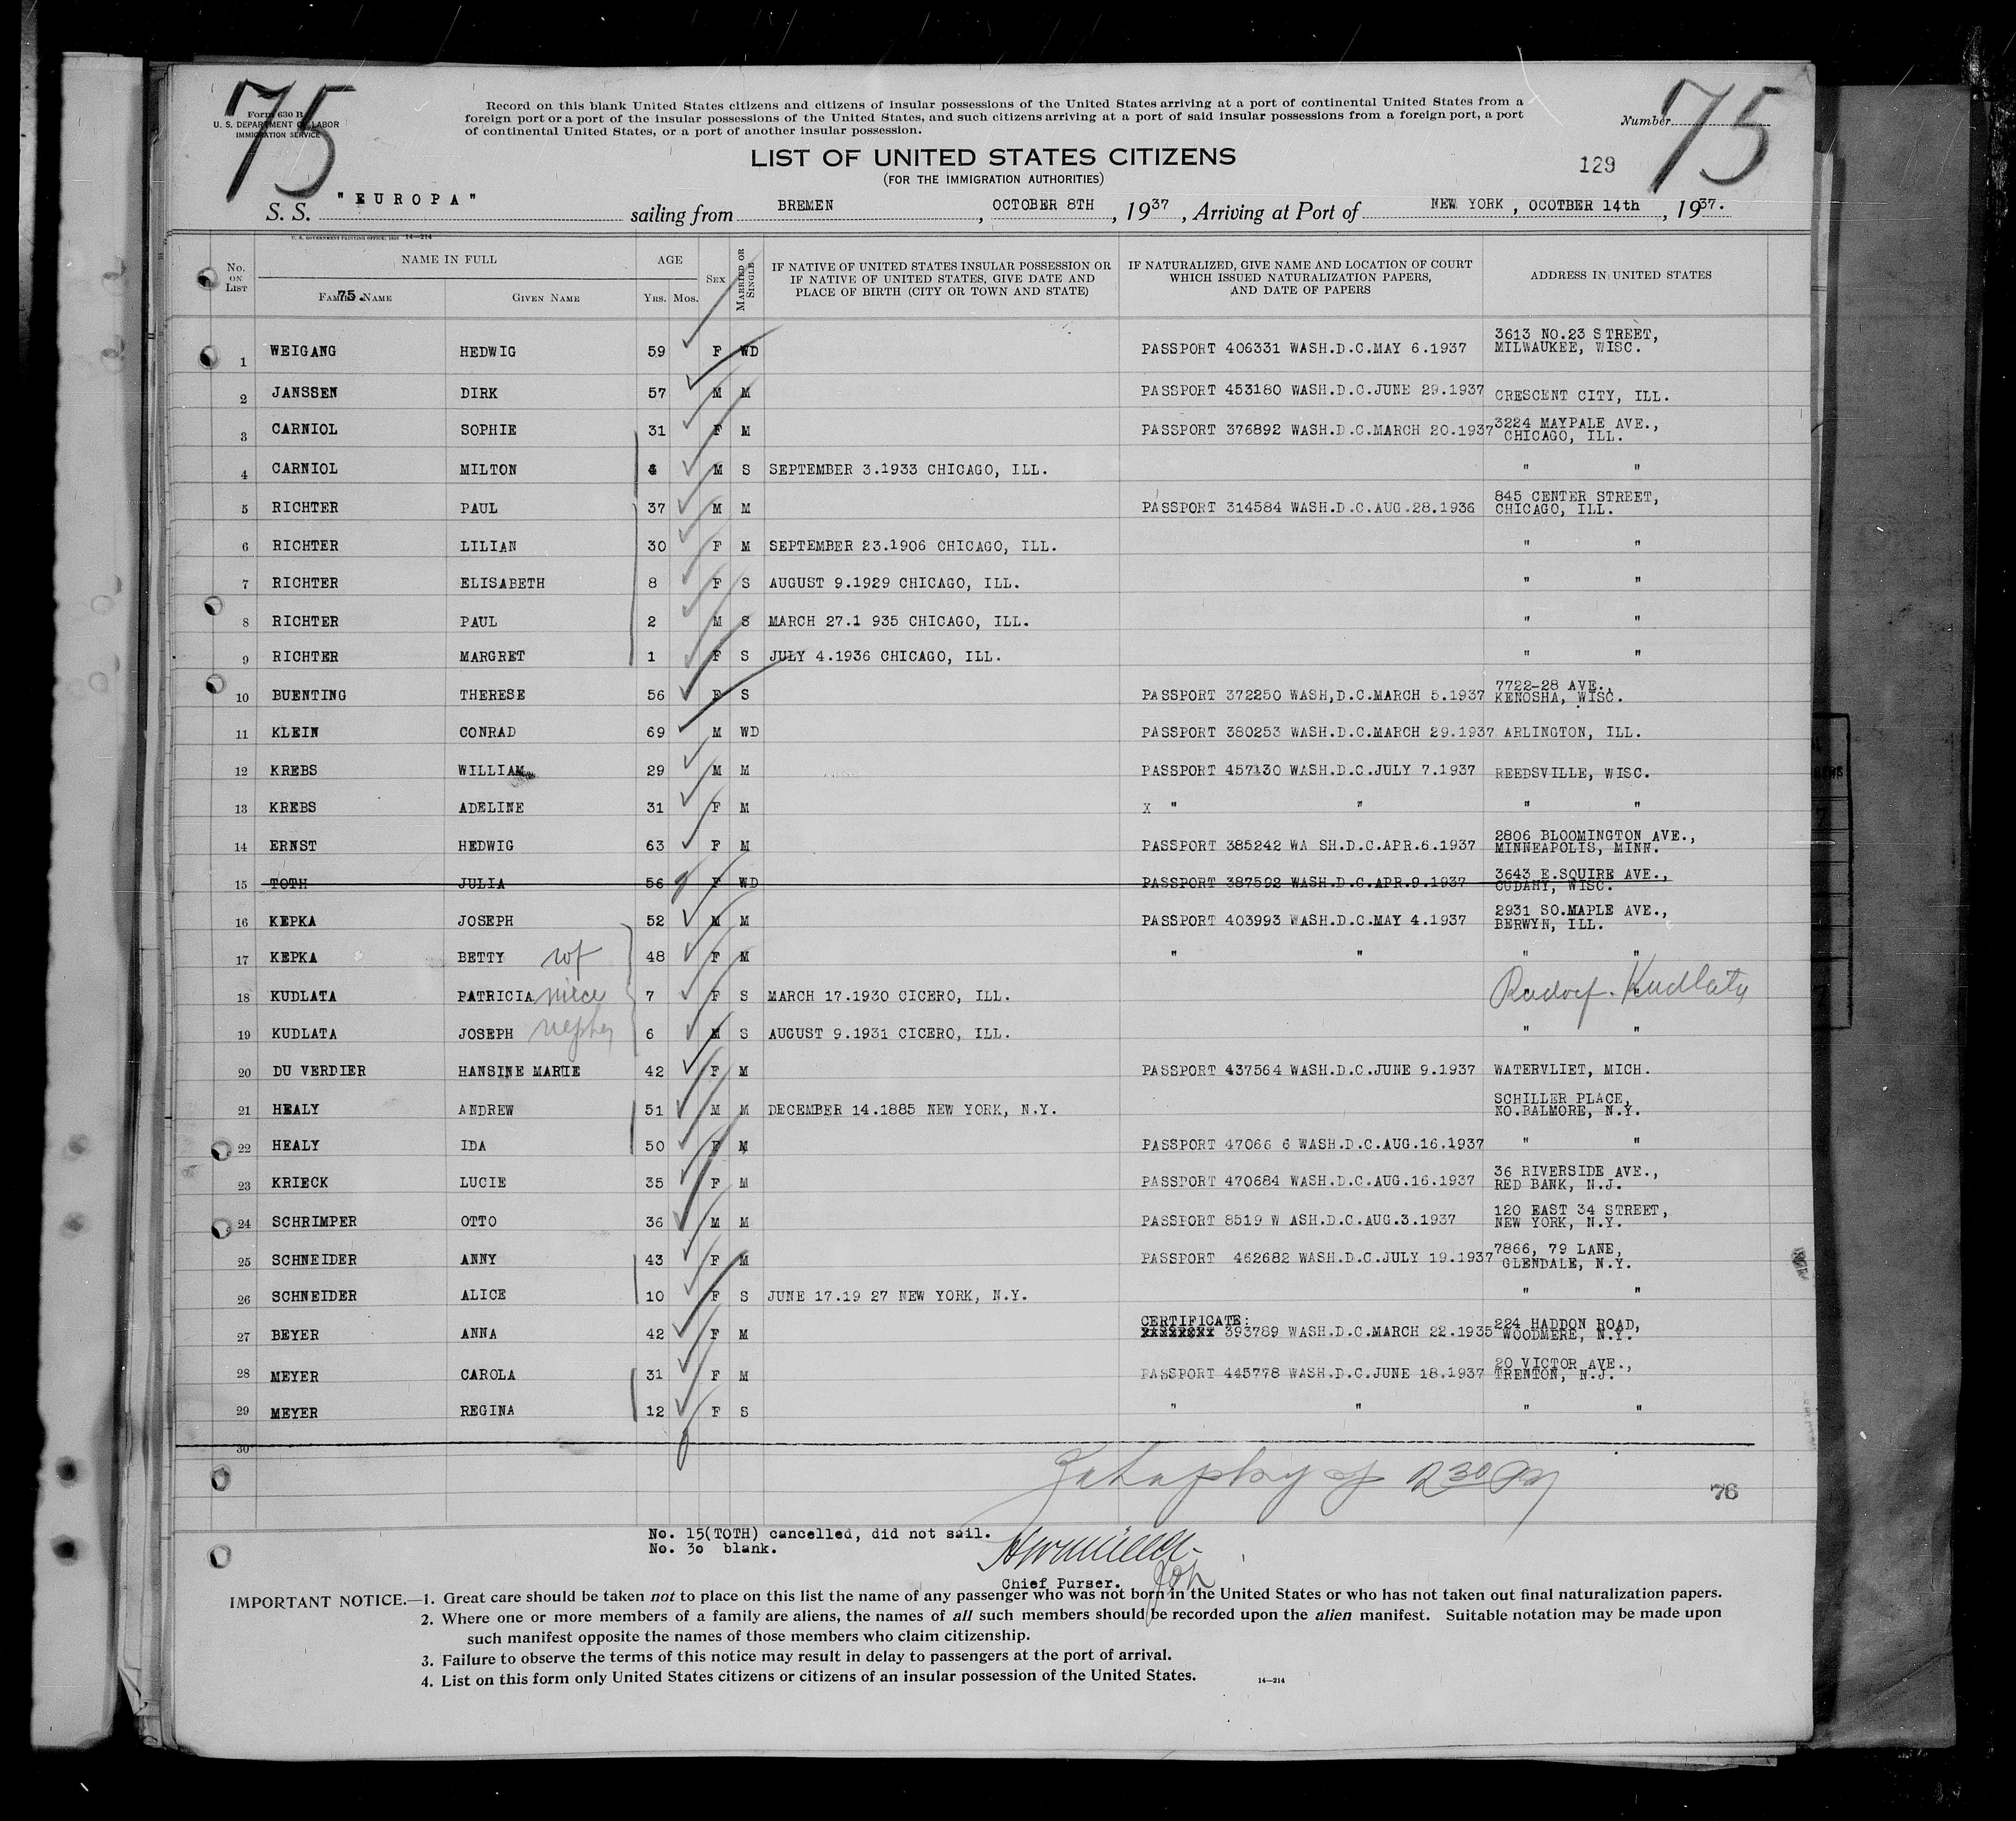 75
75
Form 630 B
U. S. DEPARTMENT OF LABOR
IMMIGRATION SERVICE
Record on this blank United States citizens and citizens of insular possessions of the United States arriving at a port of continental United States from a
foreign port or a port of the insular possessions of the United States, and such citizens arriving at a port of said insular possessions from a foreign port, a port
of continental United States, or a port of another insular possession.
Number
LIST OF UNITED STATES CITIZENS
(FOR THE IMMIGRATION AUTHORITIES)
129
S. S. "EUROPA" sailing from BREMEN, OCTOBER 8TH, 1937, Arriving at Port of NEW YORK, OCOTBER 14th, 1937.
14—214
No. ON LIST NAME IN FULL AGE SEX MARRIED OR SINGLE IF NATIVE OF UNITED STATES INSULAR POSSESSION OR IF NATIVE OF UNITED STATES, GIVE DATE AND PLACE OF BIRTH (CITY OR TOWN AND STATE) IF NATURALIZED, GIVE NAME AND LOCATION OF COURT WHICH ISSUED NATURALIZATION PAPERS, AND DATE OF PAPERS ADDRESS IN UNITED STATES
FAMILY NAME 75. GIVEN NAME YRS. MOS.
1 WEIGANG HEDWIG 59 F WD PASSPORT 406331 WASH.D.C.MAY 6.1937 3613 NO.23 STREET, MILWAUKEE, WISC.
2 JANSSEN DIRK 57 M M PASSPORT 453180 WASH.D.C.JUNE 29.1937 CRESCENT CITY, ILL.
3 CARNIOL SOPHIE 31 F M PASSPORT 376892 WASH.D.C.MARCH 20.1937 3224 MAYPALE AVE., CHICAGO, ILL.
4 CARNIOL MILTON 4 M S SEPTEMBER 3.1933 CHICAGO, ILL. " "
5 RICHTER PAUL 37 M M PASSPORT 314584 WASH.D.C.AUG.28.1936 845 CENTER STREET, CHICAGO, ILL.
6 RICHTER LILIAN 30 F M SEPTEMBER 23.1906 CHICAGO, ILL. " "
7 RICHTER ELISABETH 8 F S AUGUST 9.1929 CHICAGO, ILL. " "
8 RICHTER PAUL 2 M S MARCH 27.1 935 CHICAGO, ILL. " "
9 RICHTER MARGRET 1 F S JULY 4.1936 CHICAGO, ILL. " "
10 BUENTING THERESE 56 F S PASSPORT 372250 WASH,D.C.MARCH 5.1937 7722-28 AVE., KENOSHA, WISC.
11 KLEIN CONRAD 69 M WD PASSPORT 380253 WASH.D.C.MARCH 29.1937 ARLINGTON, ILL.
12 KREBS WILLIAM 29 M M PASSPORT 457130 WASH.D.C.JULY 7.1937 REEDSVILLE, WISC.
13 KREBS ADELINE 31 F M X " " " "
14 ERNST HEDWIG 63 F M PASSPORT 385242 WA SH.D.C.APR.6.1937 2806 BLOOMINGTON AVE., MINNEAPOLIS, MINN.
15 TOTH JULIA 56 F WD PASSPORT 387592 WASH.D.C.APR.9.1937 3643 E.SQUIRE AVE., CUDAHY, WISC.
16 KEPKA JOSEPH 52 M M PASSPORT 403993 WASH.D.C.MAY 4.1937 2931 SO.MAPLE AVE., BERWYN, ILL.
17 KEPKA BETTY wf 48 F M " " " "
18 KUDLATA PATRICIA niece 7 F S MARCH 17.1930 CICERO, ILL. " Kudlaty
19 KUDLATA JOSEPH nephew 6 M S AUGUST 9.1931 CICERO, ILL. " "
20 DU VERDIER HANSINE MARIE 42 F M PASSPORT 437564 WASH.D.C.JUNE 9.1937 WATERVLIET, MICH.
21 HEALY ANDREW 51 M M DECEMBER 14.1885 NEW YORK, N.Y. SCHILLER PLACE, NO.BALMORE, N.Y.
22 HEALY IDA 50 F M PASSPORT 47066 6 WASH.D.C.AUG.16.1937 " "
23 KRIECK LUCIE 35 F M PASSPORT 470684 WASH.D.C.AUG.16.1937 36 RIVERSIDE AVE., RED BANK, N.J.
24 SCHRIMPER OTTO 36 M M PASSPORT 8519 W ASH.D.C.AUG.3.1937 120 EAST 34 STREET, NEW YORK, N.Y.
25 SCHNEIDER ANNY 43 F M PASSPORT 462682 WASH.D.C.JULY 19.1937 7866, 79 LANE, GLENDALE, N.Y.
26 SCHNEIDER ALICE 10 F S JUNE 17.19 27 NEW YORK, N.Y. " "
27 BEYER ANNA 42 F M CERTIFICATE: XXXXXXXX 393789 WASH.D.C.MARCH 22.1935 224 HADDON ROAD, WOODMERE, N.Y.
28 MEYER CAROLA 31 F M PASSPORT 445778 WASH.D.C.JUNE 18.1937 20 VICTOR AVE., TRENTON, N.J.
29 MEYER REGINA 12 F S " " " "
30
76
No. 15(TOTH) cancelled, did not sail.
No. 30 blank.
Chief Purser.
IMPORTANT NOTICE.—1. Great care should be taken not to place on this list the name of any passenger who was not born in the United States or who has not taken out final naturalization papers.
2. Where one or more members of a family are aliens, the names of all such members should be recorded upon the alien manifest. Suitable notation may be made upon
such manifest opposite the names of those members who claim citizenship.
3. Failure to observe the terms of this notice may result in delay to passengers at the port of arrival.
4. List on this form only United States citizens or citizens of an insular possession of the United States.
14—214